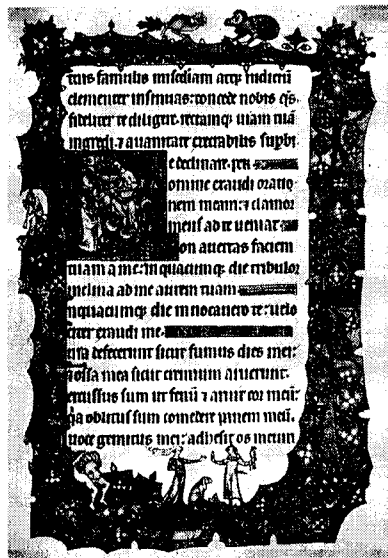 tuis famulis misediam atq; iudiciu
clementer insinuas: concede nobis qs.
fideliter te diligere. rectamq; uiam tua
ingredi. ⁊ a uanitate execrabilis supbi
e declinare. per
omine exaudi oratio
nem meam: ⁊ clamor
meus ad te ueniat
on auertas faciem
tuam a me: in quacumq; die tribulor
inclina ad me aurem tuam
nquacumq; die inuocauero te: uelo
citer exaudi me
uia defecerunt sicut fumus dies mei:
⁊ ossa mea sicut cremium aruerunt.
ercussus sum ut fenu ⁊ aruit cor meu:
qa oblitus sum comedere panem meu.
uoce gemitus mei: adhesit os meum